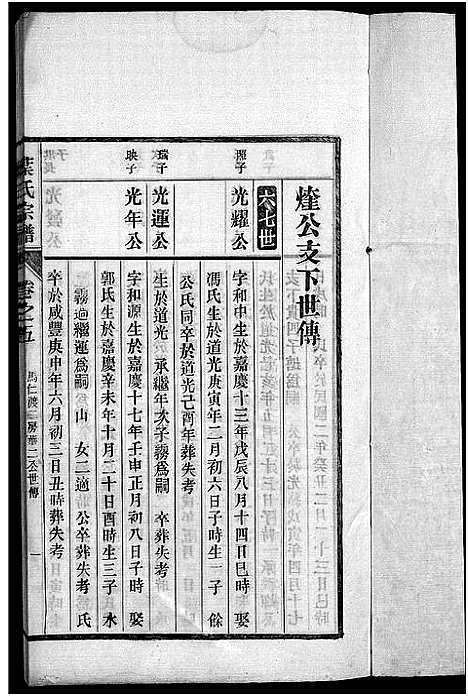 煃公支下世傳
六七世
照子
光耀公
字和中生於嘉慶十三年戊辰八月十四日巳時 娶
馮氏生於道光庚寅年二月初六日子時生一子 餘
公氏同卒於道光己酉年葬失考
瑞子
光運公
生於道光 承繼年次子霧為嗣 卒葬失考
映子
光年公
字和源生於嘉慶十七年壬申正月初八日子時 娶
郭氏生於嘉慶辛未年十月二十日酉時生三子 永
霧過繼運為嗣 山 女二適 公卒葬失考 氏
卒於咸豐庚申年六月初三日丑時葬失考
葉氏宗譜
卷之五
馬仁渡二房華二公世傳
一